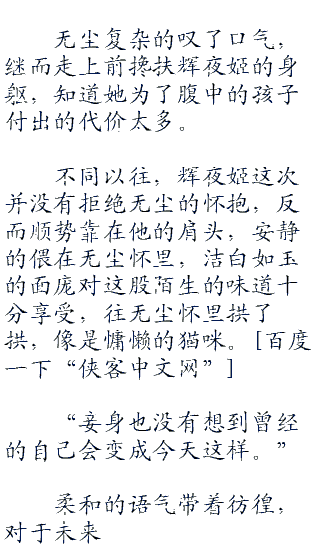 无尘复杂的叹了口气，
继而走上前搀扶辉夜姬的身
躯，知道她为了腹中的孩子
付出的代价太多。
不同以往，辉夜姬这次
并没有拒绝无尘的怀抱，反
而顺势靠在他的肩头，安静
的偎在无尘怀里，洁白如玉
的面庞对这股陌生的味道十
分享受，往无尘怀里拱了
拱，像是慵懒的猫咪。[百度
一下“侠客中文网”]
“妾身也没有想到曾经
的自己会变成今天这样。”
柔和的语气带着彷徨，
对于未来